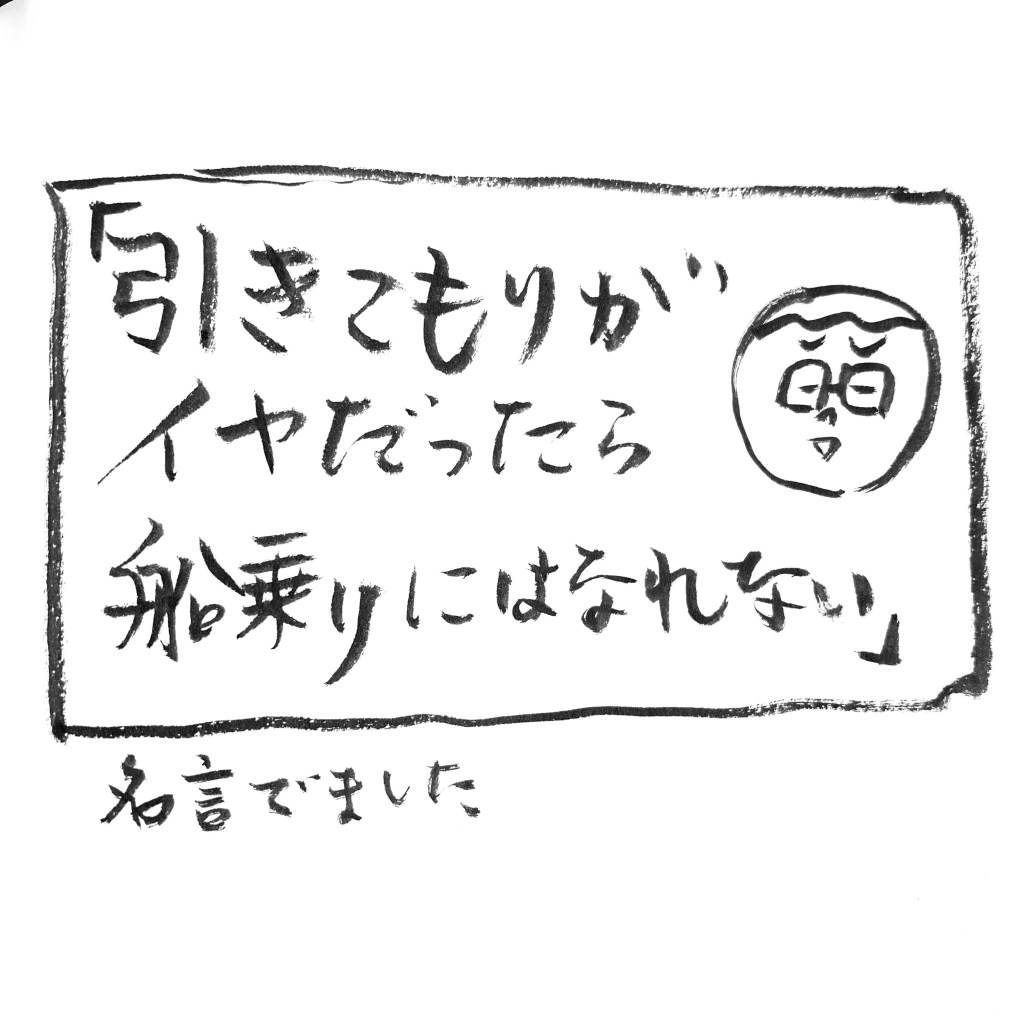 「引きこもりが
イヤだったら
船乗りにはなれない」
名言でました